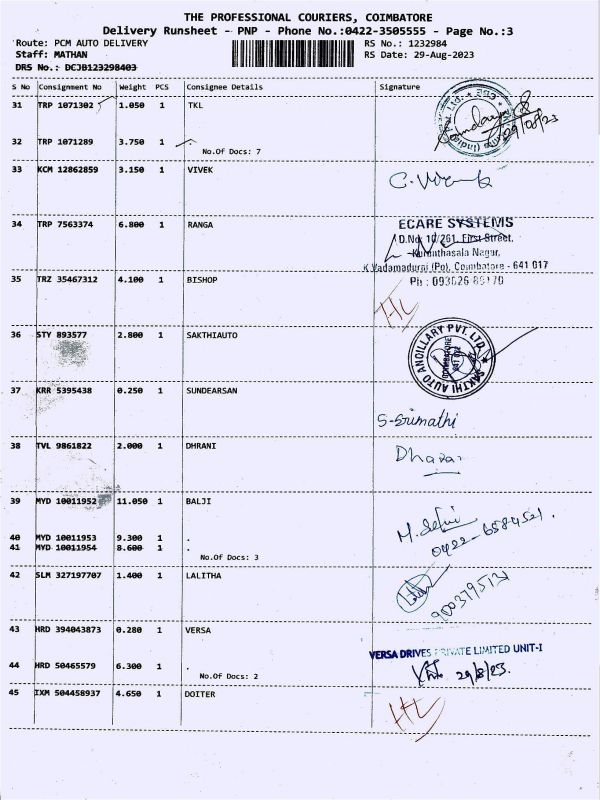 THE PROFESSIONAL COURIERS, COIMBATORE
Delivery Runsheet - PNP - Phone No.:0422-3505555 - Page No.:3
Route: PCM AUTO DELIVERY RS No.: 1232984
Staff: MATHAN RS Date: 29-Aug-2023
DRS No.: DCJB123298403
S No Consignment No Weight PCS Consignee Details Signature
31 TRP 1071302 1.050 1 TKL
29/08/23
32 TRP 1071289 3.750 1
No.Of Docs: 7
33 KCM 12862859 3.150 1 VIVEK
34 TRP 7563374 6.800 1 RANGA
ECARE SYSTEMS
D.No: 10/261, First Street,
Kurunthasala Nagar,
K.Vadamadurai (Po), Coimbatore - 641 017
35 TRZ 35467312 4.100 1 BISHOP
HL
36 STY 893577 2.800 1 SAKTHIAUTO
SAKTHI AUTO ANCILLARY PVT. LTD.
37 KRR 5395438 0.250 1 SUNDEARSAN
S-Srimathi
38 TVL 9861822 2.000 1 DHRANI
39 MYD 10011952 11.050 1 BALJI
40 MYD 10011953 9.300 1 .
41 MYD 10011954 8.600 1 .
No.Of Docs: 3
42 SLM 327197707 1.400 1 LALITHA
43 HRD 394043873 0.280 1 VERSA
VERSA DRIVES PRIVATE LIMITED UNIT-I
29/8/23.
44 HRD 50465579 6.300 1 .
No.Of Docs: 2
45 IXM 504458937 4.650 1 DOITER
HL